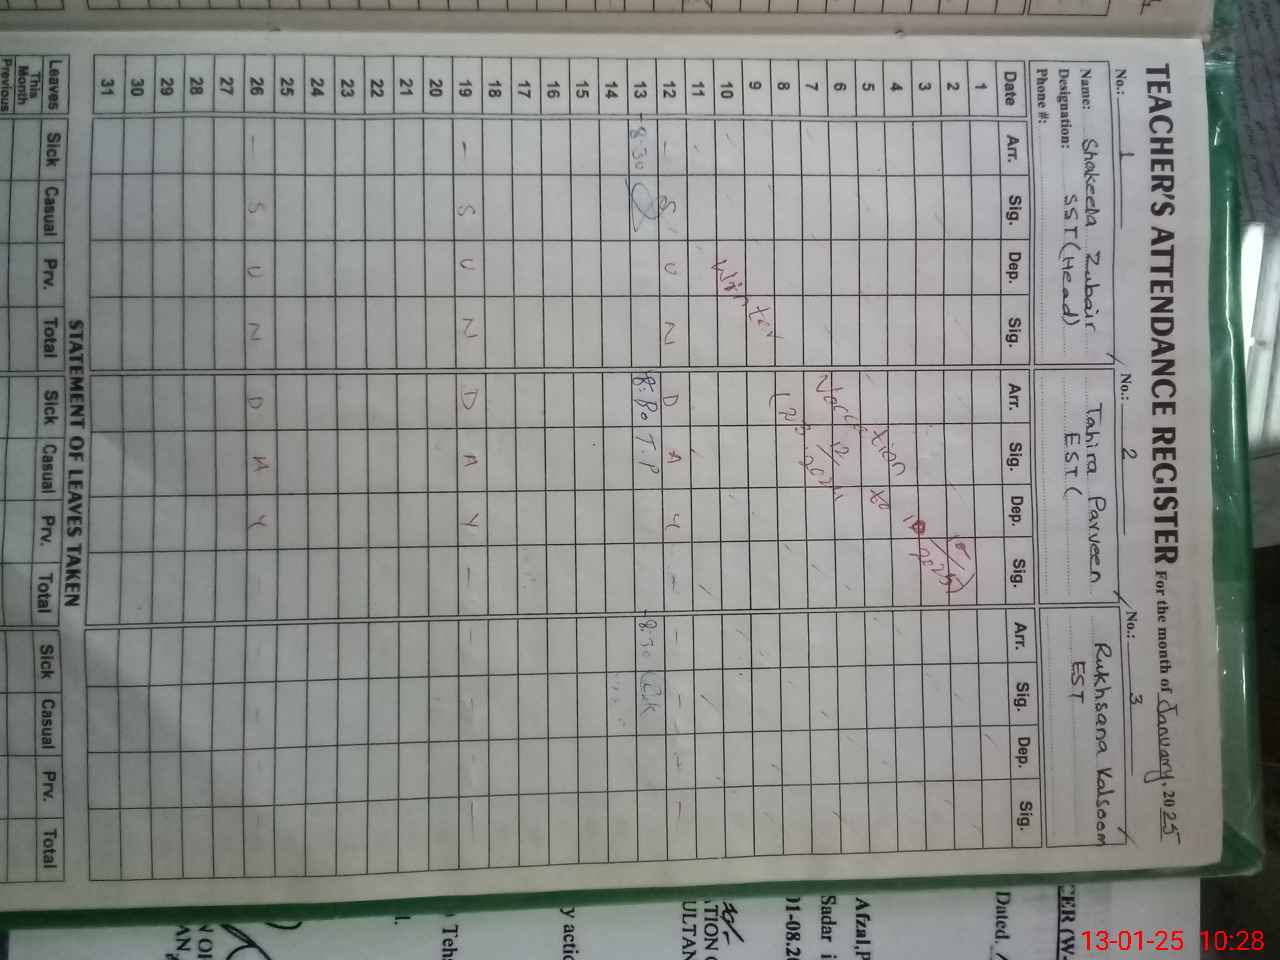 TEACHER'S ATTENDANCE REGISTER For the month of January, 2025
No.: 1
Name: Shakeela Zubair
Designation: SST (Head)
Phone #:
No.: 2
Tahira Parveen
EST (
No.: 3
Rukhsana Kalsoom
EST
Date Arr. Sig. Dep. Sig. Arr. Sig. Dep. Sig. Arr. Sig. Dep. Sig.
1
2
3
4
5
6
7
8
9
10
11
12 - S U N D A Y - - - - - -
13 8:30 8:30 T.P 8:30
14
15
16
17
18
19 - S U N D A Y - - - -
20
21
22
23
24
25
26 - S U N D A Y - - - -
27
28
29
30
31
Winter
to
2024
2025)
STATEMENT OF LEAVES TAKEN
Leaves Sick Casual Prv. Total Sick Casual Prv. Total Sick Casual Prv. Total
This Month
Previous
CER (W-
Dated.
Afzal,P
Sadar i
01-08.20
ATION
ULTAN
y actio
Tehs
l.
13-01-25 10:28